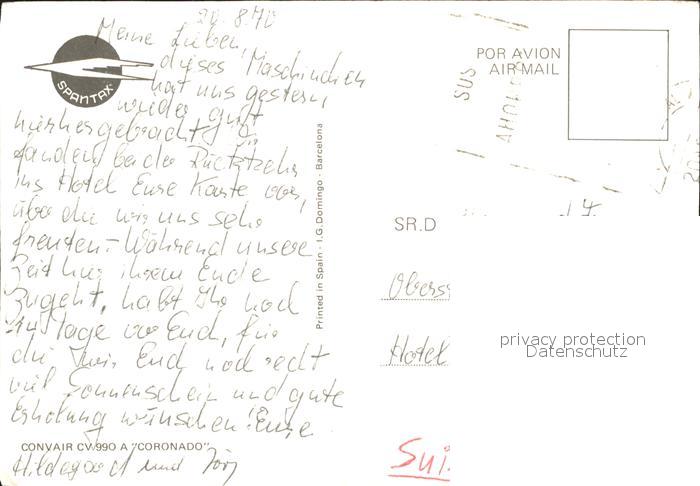 20.8.70
Meine Lieben,
dieses Maschinchen
hat uns gestern
wieder gut
hierhergebracht
fanden bei der Rückkehr
ins Hotel Eure Karte vor,
über die wir uns sehr
freuten.- Während unsere
Zeit hier ihrem Ende
zugeht, habt Ihr noch
14 Tage vor Euch, für
die wir Euch noch recht
viel Sonnenschein und gute
Erholung wünschen! Eure
Hildegard und Jörg
SPANTAX
CONVAIR CV 990 A "CORONADO"
Printed in Spain - I.G. Domingo - Barcelona
POR AVION
AIR MAIL
SR.D
Obers
Hotel
Sui
privacy protection
Datenschutz